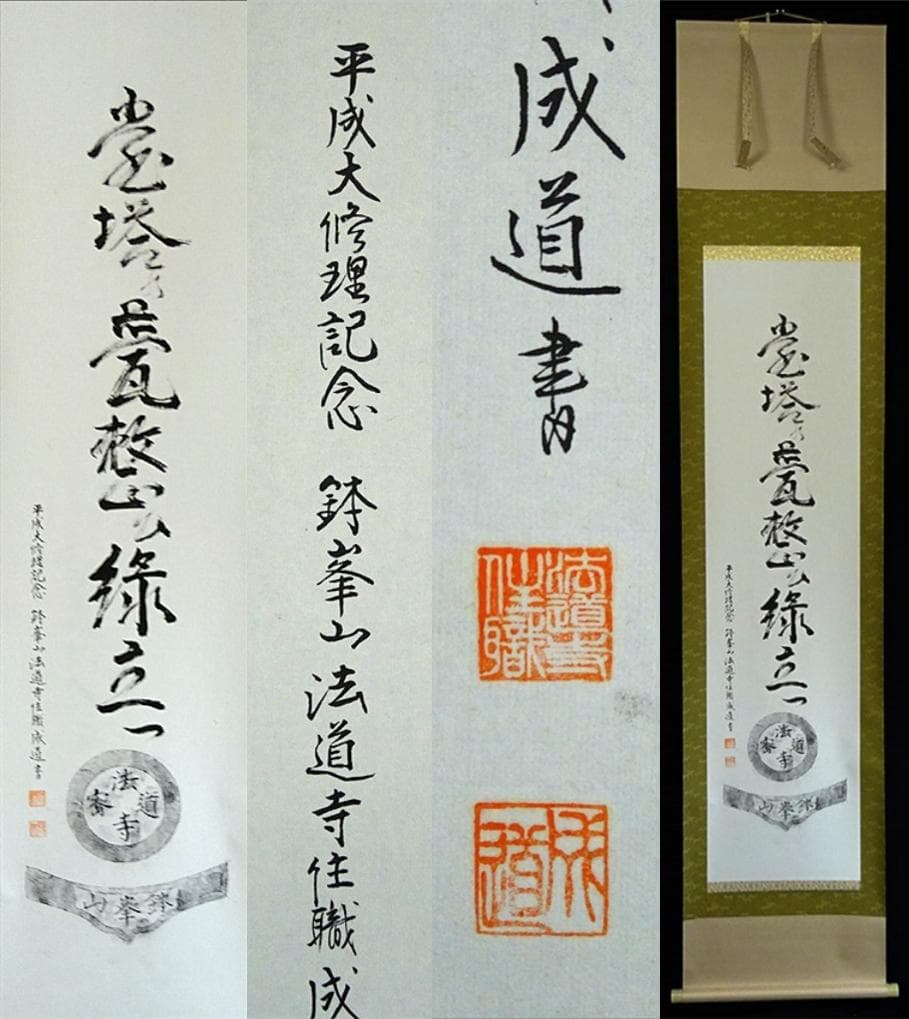 堂塔の甍整ひ緑立つ
平成大修理記念 鉢峯山法道寺住職成道書
法道寺
鉢峯山
平成大修理記念 鉢峯山法道寺住職成
成道書
法道寺住職
成道
堂塔の甍整ひ緑立つ
平成大修理記念 鉢峯山法道寺住職成道書
法道寺
鉢峯山